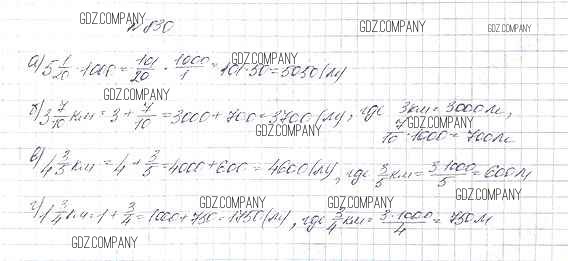 GDZ.COMPANY
№830
GDZ.COMPANY
GDZ.COMPANY
а) 5 1/20 · 1000 = 101/20 · 1000/1 = 101·50 = 5050 (м)
GDZ.COMPANY
GDZ.COMPANY
б) 3 7/10 км = 3 + 7/10 = 3000 + 700 = 3700 (м), где 3 км = 3000 м,
7/10 · 1000 = 700 м
GDZ.COMPANY
GDZ.COMPANY
в) 4 3/5 км = 4 + 3/5 = 4000 + 600 = 4600 (м), где 3/5 км = 3·1000/5 = 600 м
GDZ.COMPANY
GDZ.COMPANY
GDZ.COMPANY
г) 1 3/4 км = 1 + 3/4 = 1000 + 750 = 1750 (м), где 3/4 км = 3·1000/4 = 750 м
GDZ.COMPANY